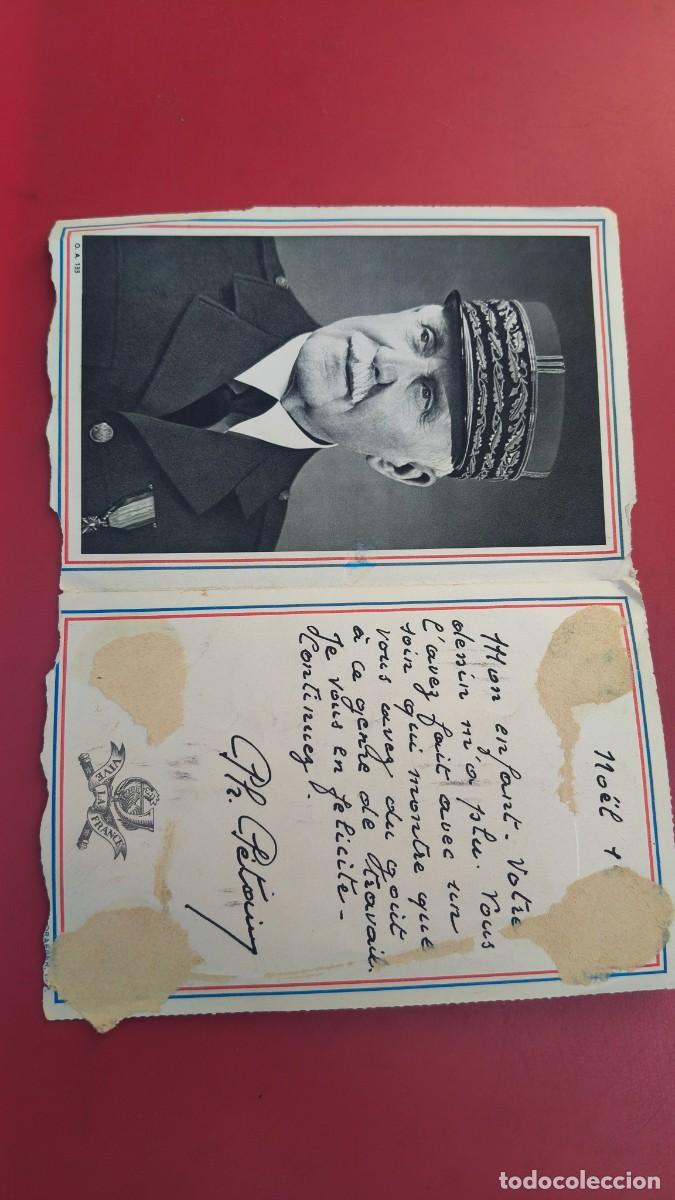 O. A. 133
Noël 1
Mon enfant. Votre
dessin m'a plu. Vous
l'avez fait avec un
soin qui montre que
vous avez du goût
à ce genre de travail.
Je vous en félicite -
Continuez.
Ph. Pétain
VIVE LA FRANCE
todocoleccion